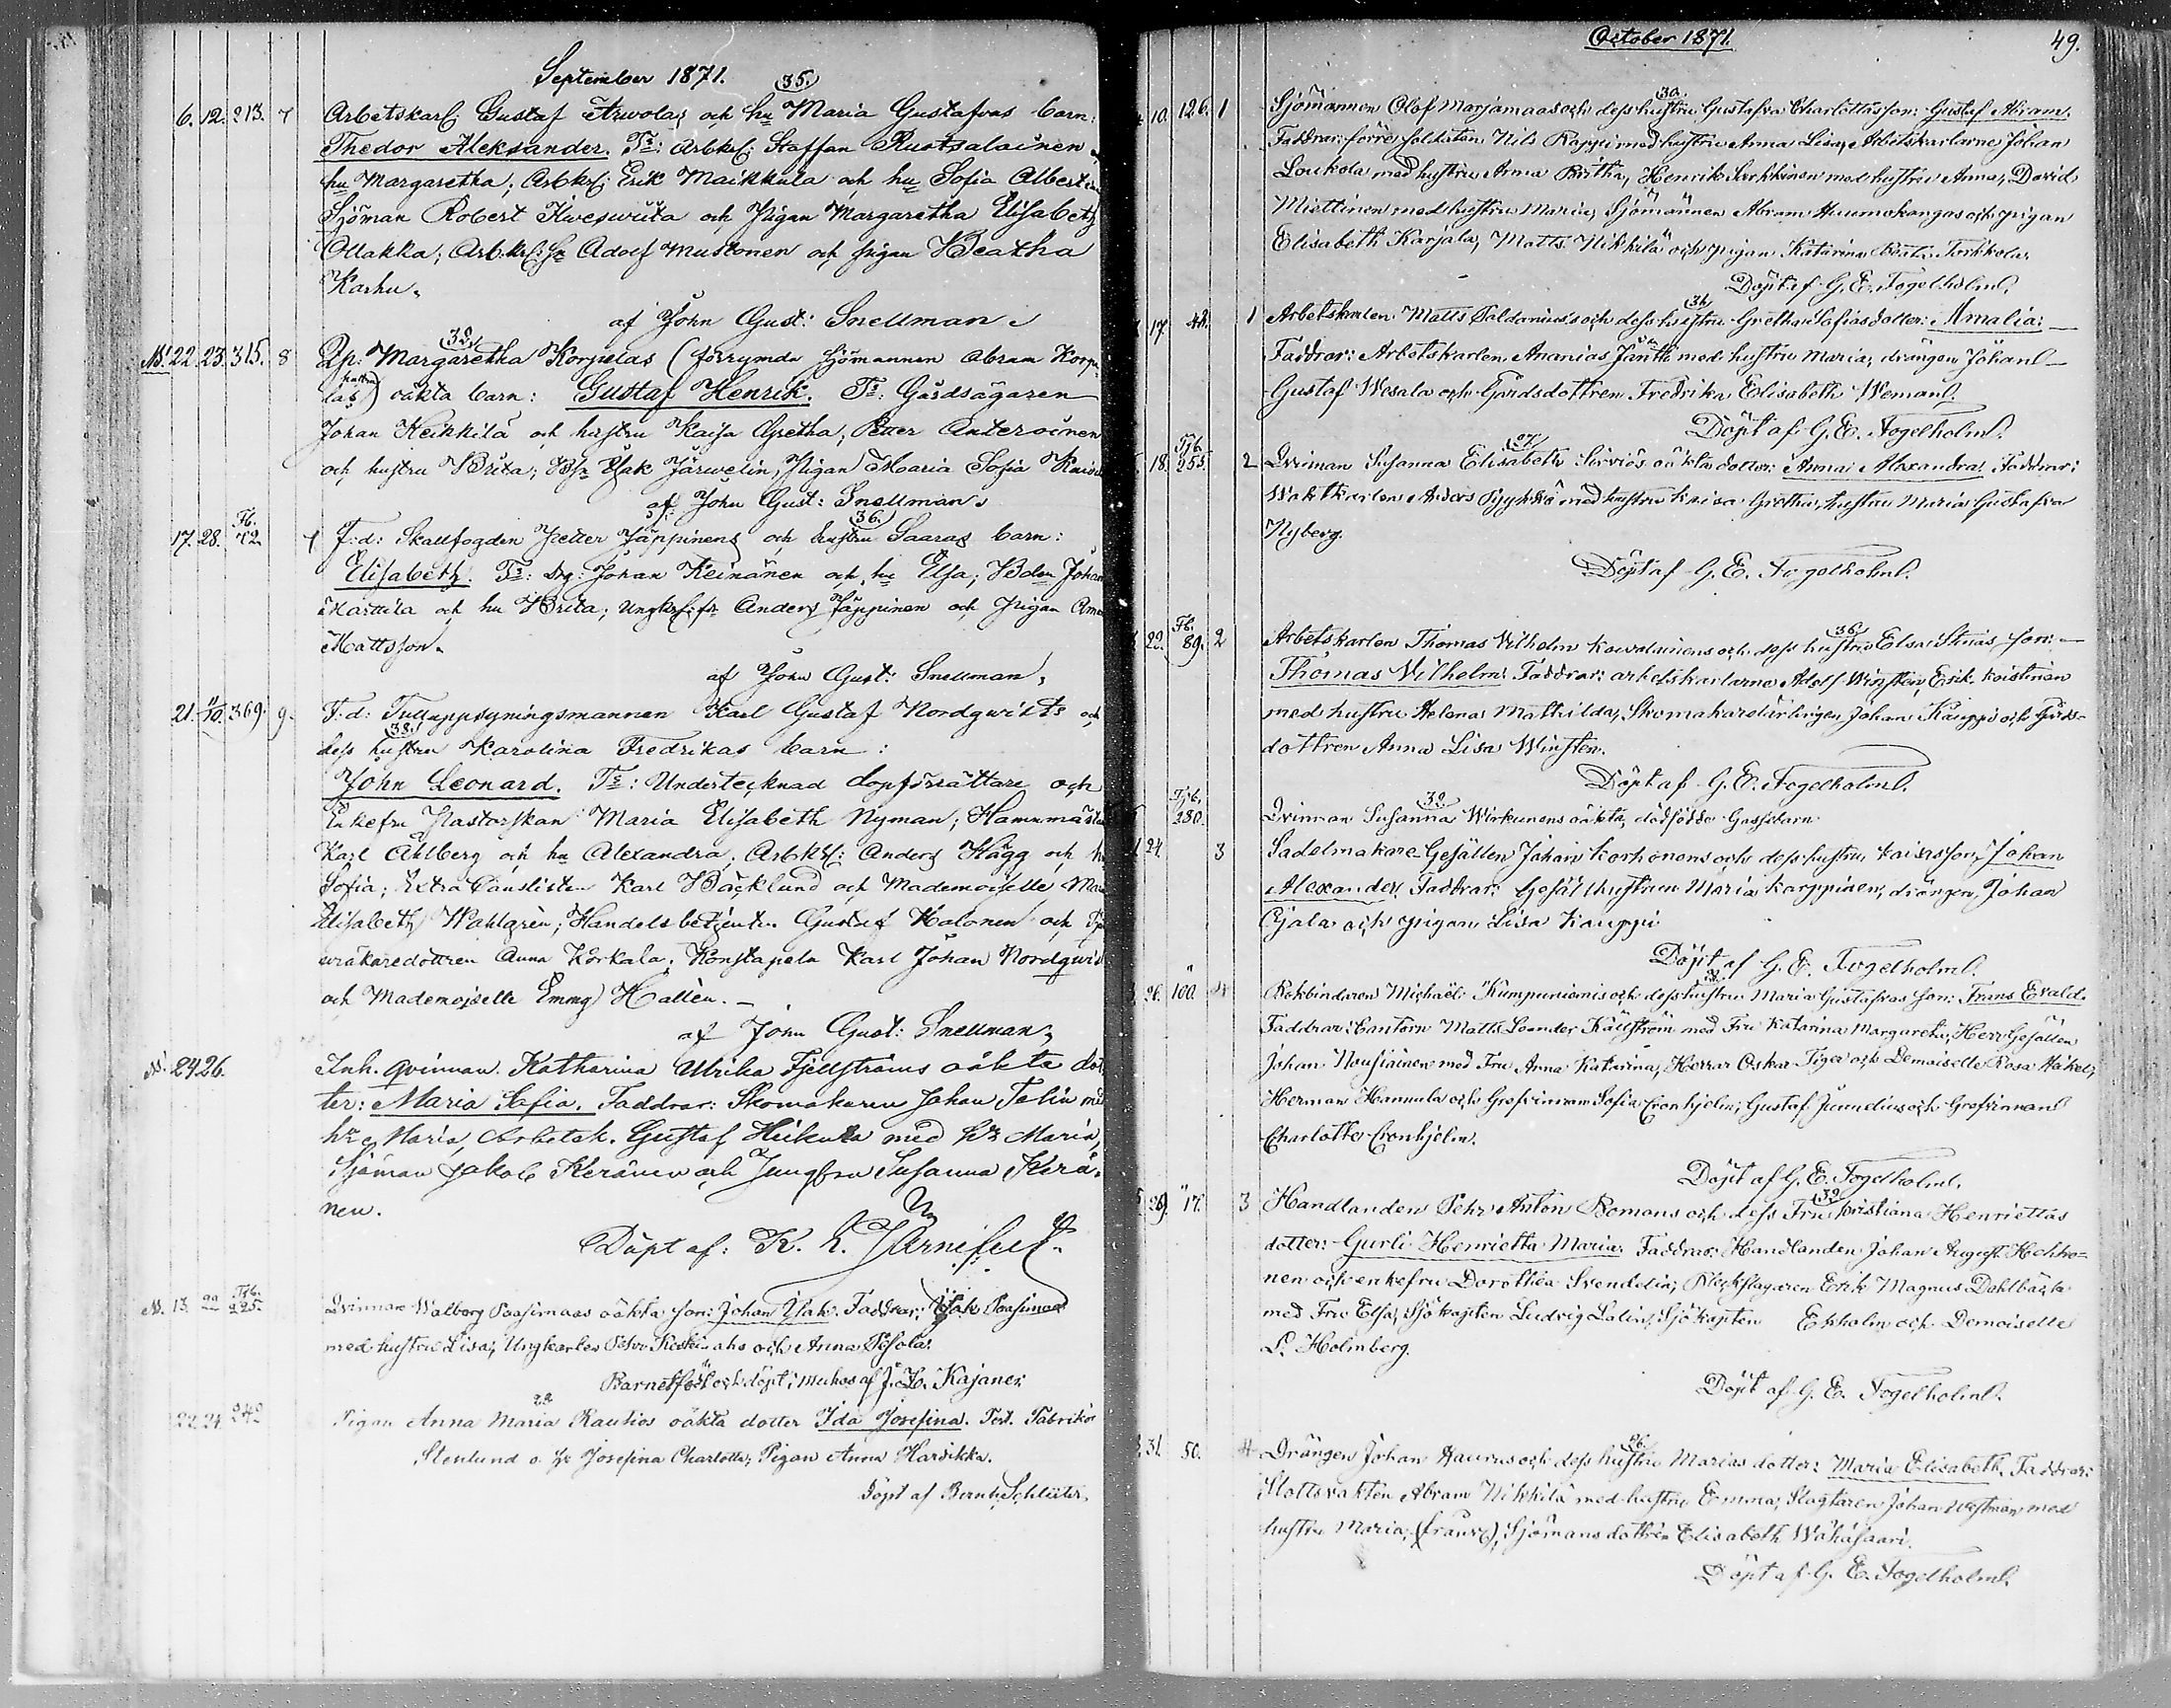 September 1871.
35.
6. 12. 213. 7 Arbetskarl: Gustaf Arwolas och hu Maria Gustafvas barn:
Thedor Aleksander. Fr: Arbkrl: Staffan Ruotsalainen
hu Margaretha; Arbkrl: Erik Maikkula och hu Sofia Albertina
Sjöman Robert Kivesvirta och pigan Margaretha Elisabeth
Ollakka; Arb.krl: Adolf Mustonen och pigan Beatha
Karhu.
af John Gust: Snellman
38.
N. 22. 23. 315. 8 Qp: Margaretha Korpelas (förrymda sjömannen Abram Korpe-
las hustru) oäkta barn: Gustaf Henrik. Fr: Gårdsägaren
Johan Heikkilä och hustru Kaisa Gretha; Petter Anteroinen
och hustru Brita; Isak Järwelin, Pigan Maria Sofia
af John Gust: Snellman
36.
17. 28. Fb. 72 1 F:d: Skallfogden Petter Jäppinens och hustru Saaras barn:
Elisabeth. Fr: Drg: Johan Keinänen och hu Elsa; Bdn Johan
Marttila och hu Brita; Ungkrl: Anders Jäppinen och Pigan
Mattsson.
af John Gust: Snellman
21. 1/10. 369. 9. F:d: Tulluppsyningsmannen Karl Gustaf Nordqwists och
38.
dess hustru Karolina Fredrikas barn:
John Leonard. Fr: Undertecknad dopförrättare och
Enkefru Pastorskan Maria Elisabeth Nyman; Hamnmästa
Karl Åhlberg och hu Alexandra. Arbkrl: Anders Hägg och hu
Sofia; Extra Canslisten Karl Bäcklund och Mademoiselle
Elisabeth Wahlgrén; Handelsbetjenten Gustaf Halonen och
wräkaredottren Anna Körkala; Konstapeln Karl Johan Nordqwist
och Mademoiselle Emmy Hallén.
af John Gust: Snellman
N. 24 26. Inh. qvinnan Katharina Ulrika Fjellströms oäkta dot-
ter: Maria Sofia. Faddrar: Skomakaren Johan Felin med
hr Maria, Arbetsk. Gustaf Heikura med hr Maria,
Sjöman Jakob Keränen och Jungfru Susanna Kerä-
nen.
Döpt af: K. L. Järnefelt.
N. 13. 22 Fjb. 225. Qvinnan Walborg Paasimaas oäkta son: Johan Isak. Faddrar: Isak Paasimaa
med hustru Lisa; Ungkarlen Petter och Anna Pesola.
Barnet född och döpt i Muhos af J. H. Kajaner.
22
22. 24. 240 Pigan Anna Maria Rautios oäkta dotter Ida Josefina. Test. Fabrikör
Stenlund o. hr Josefina Charlotta, Pigan Anna Harsikka.
Döpt af Bernh. Schlüter.
October 1871. 49.
30.
10. 126. 1 Sjömannen Olof Marjamaas och dess hustru Gustafva Charlottas son: Gustaf Abram.
Faddrar: förre soldaten Nils Rappi med hustru Anna Lisa, Arbetskarlarne Johan
Loukola med hustru Anna Britha, Henrik Serkkinen med hustru Anna, David
Miettinen med hustru Maria, Sjömännen Abram Huumokangas och pigan
Elisabeth Karjala, Matts Nikkilä och pigan Katarina Beata Torkkola.
Döpt af G. E. Fogelholm.
34
17. 42. 1 Arbetskarlen Matts Paldanius's och dess hustru Gretha Sofias dotter: Amalia:
Faddrar: Arbetskarlen Ananias Jäntti med hustru Maria, drängen Johan
Gustaf Wesala och Gårdsdottren Fredrika Elisabeth Weman.
Döpt af G. E. Fogelholm.
27.
18. Fjb. 255. 2 Qvinnan Susanna Elisabeth Serviös oäkta dotter: Anna Alexandra. Faddrar:
Waktkarlen Anders Pyykkö med hustru Kaisa Gretha, hustru Maria Gustafva
Nyberg.
Döpt af G. E. Fogelholm.
36
22. Fb. 89. 2 Arbetskarlen Thomas Wilhelm Kowalainens och dess hustru Elsa Stinas son:
Thomas Wilhelm. Faddrar: arbetskarlarne Adolf Winsten, Erik Koistinen
med hustru Helena Mathilda, Skomakarelärlingen Johan Kauppi och Gårds-
dottren Anna Lisa Winsten.
Döpt af G. E. Fogelholm.
32.
Fjb. 280. Qvinnan Susanna Wirkunens oäkta, dödfödda Gossebarn
24. 3 Sadelmakare Gesällen Johan Korhonens och dess hustru Kaisas son, Johan
Alexander. Faddrar: Gesällhustrun Maria Karppinen, drängen Johan
Ojala och pigan Lisa Kauppi
Döpt af G. E. Fogelholm.
26. 100. 4 Rekbindaren Michaël Kumpuniemis och dess hustru Maria Gustafvas son: Frans Evald.
Faddrar: Cantorn Matts Leander Källström med Fru Katarina Margareta; Herr Gesällen
Johan Nousiainen med Fru Anna Katarina, Herrar Oskar Tiger och Demoiselle Rosa Häkel;
Herman Hannula och Grefvinnan Sofia Cronhjelm; Gustaf Junnelius och Grefvinnan
Charlotte Cronhjelm.
Döpt af G. E. Fogelholm.
39
29. 17. 3 Handlanden Pehr Anton Bomans och dess Fru Kristiana Henriettas
dotter: Gurli Henrietta Maria. Faddrar: Handlanden Johan August Hohho-
nen och enkefru Dorothea Svendelin; Klockslagaren Erik Magnus Dahlbacka
med Fru Elsa, Sjökapten Ludvig Lalin, Sjökapten Ekholm och Demoiselle
L. Holmberg.
Döpt af G. E. Fogelholm.
26.
31. 50. 4 Drängen Johan Haurus och dess hustru Marias dotter: Maria Elisabeth. Faddrar:
Slottsvakten Abram Nikkilä med hustru Emma, Slagtaren Johan Westman med
hustru Maria, (frånv.), Sjömansdottren Elisabeth Wähäsaari.
Döpt af G. E. Fogelholm.